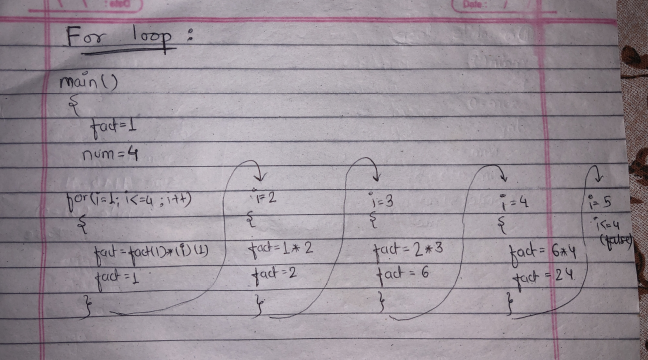 For loop :
main()
{
fact=1
num=4
for(i=1; i<=4 ; i++)
{
fact=fact(1)*(i)(1)
fact=1
}
i=2
{
fact=1*2
fact=2
}
i=3
{
fact=2*3
fact=6
}
i=4
{
fact=6*4
fact=24
}
i=5
i<=4
(false)